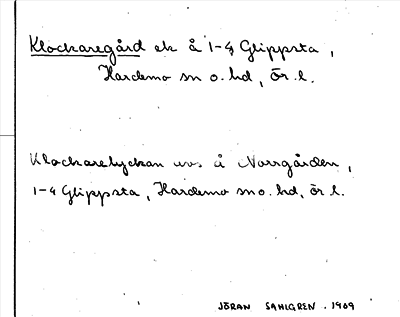 Klockaregård ek å 1-4 Glippsta,
Hardemo sn o. hd, Ör. l.
Klockarelyckan uvs å Norrgården,
1-4 Glippsta, Hardemo sn o. hd, ör l.
JÖRAN SAHLGREN. 1909